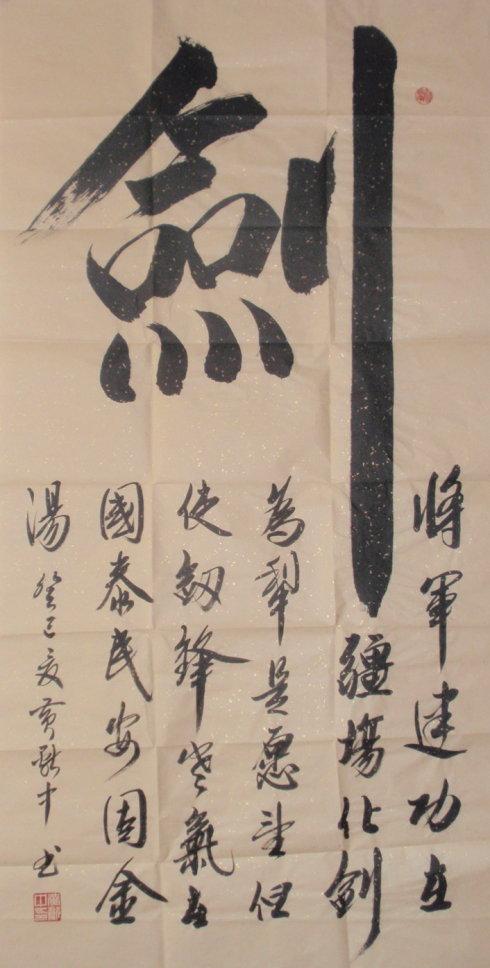 劍
將軍建功在
疆場化劍
為犁是愿望但
使劍鋒寒氣在
國泰民安固金
湯
癸巳夏黃 才书